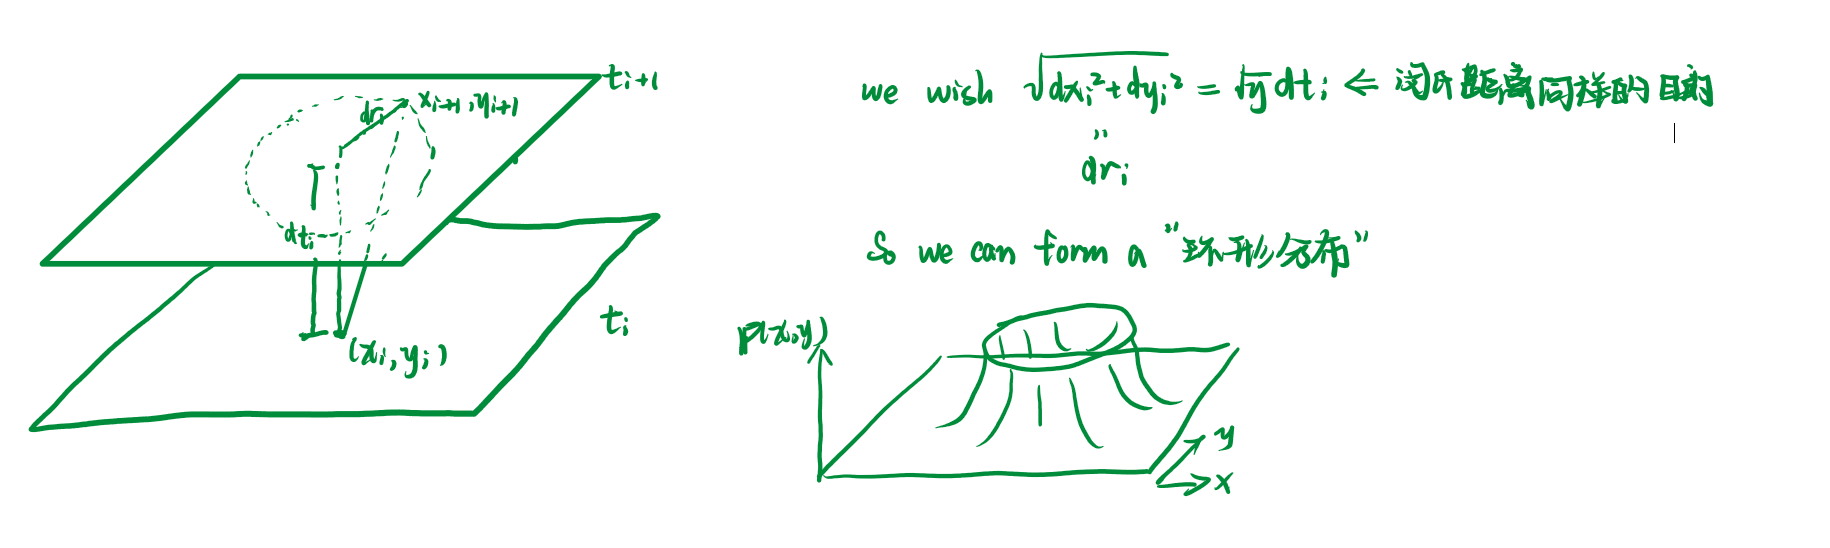 t_{i+1}
x_{i+1}, y_{i+1}
dr_i
dt_i
t_i
(x_i, y_i)
we wish √(dx_i²+dy_i²) = √y dt_i ← 闵氏距离同样的目的
"
dr_i
So we can form a "环形分布"
p(x,y)
y
x